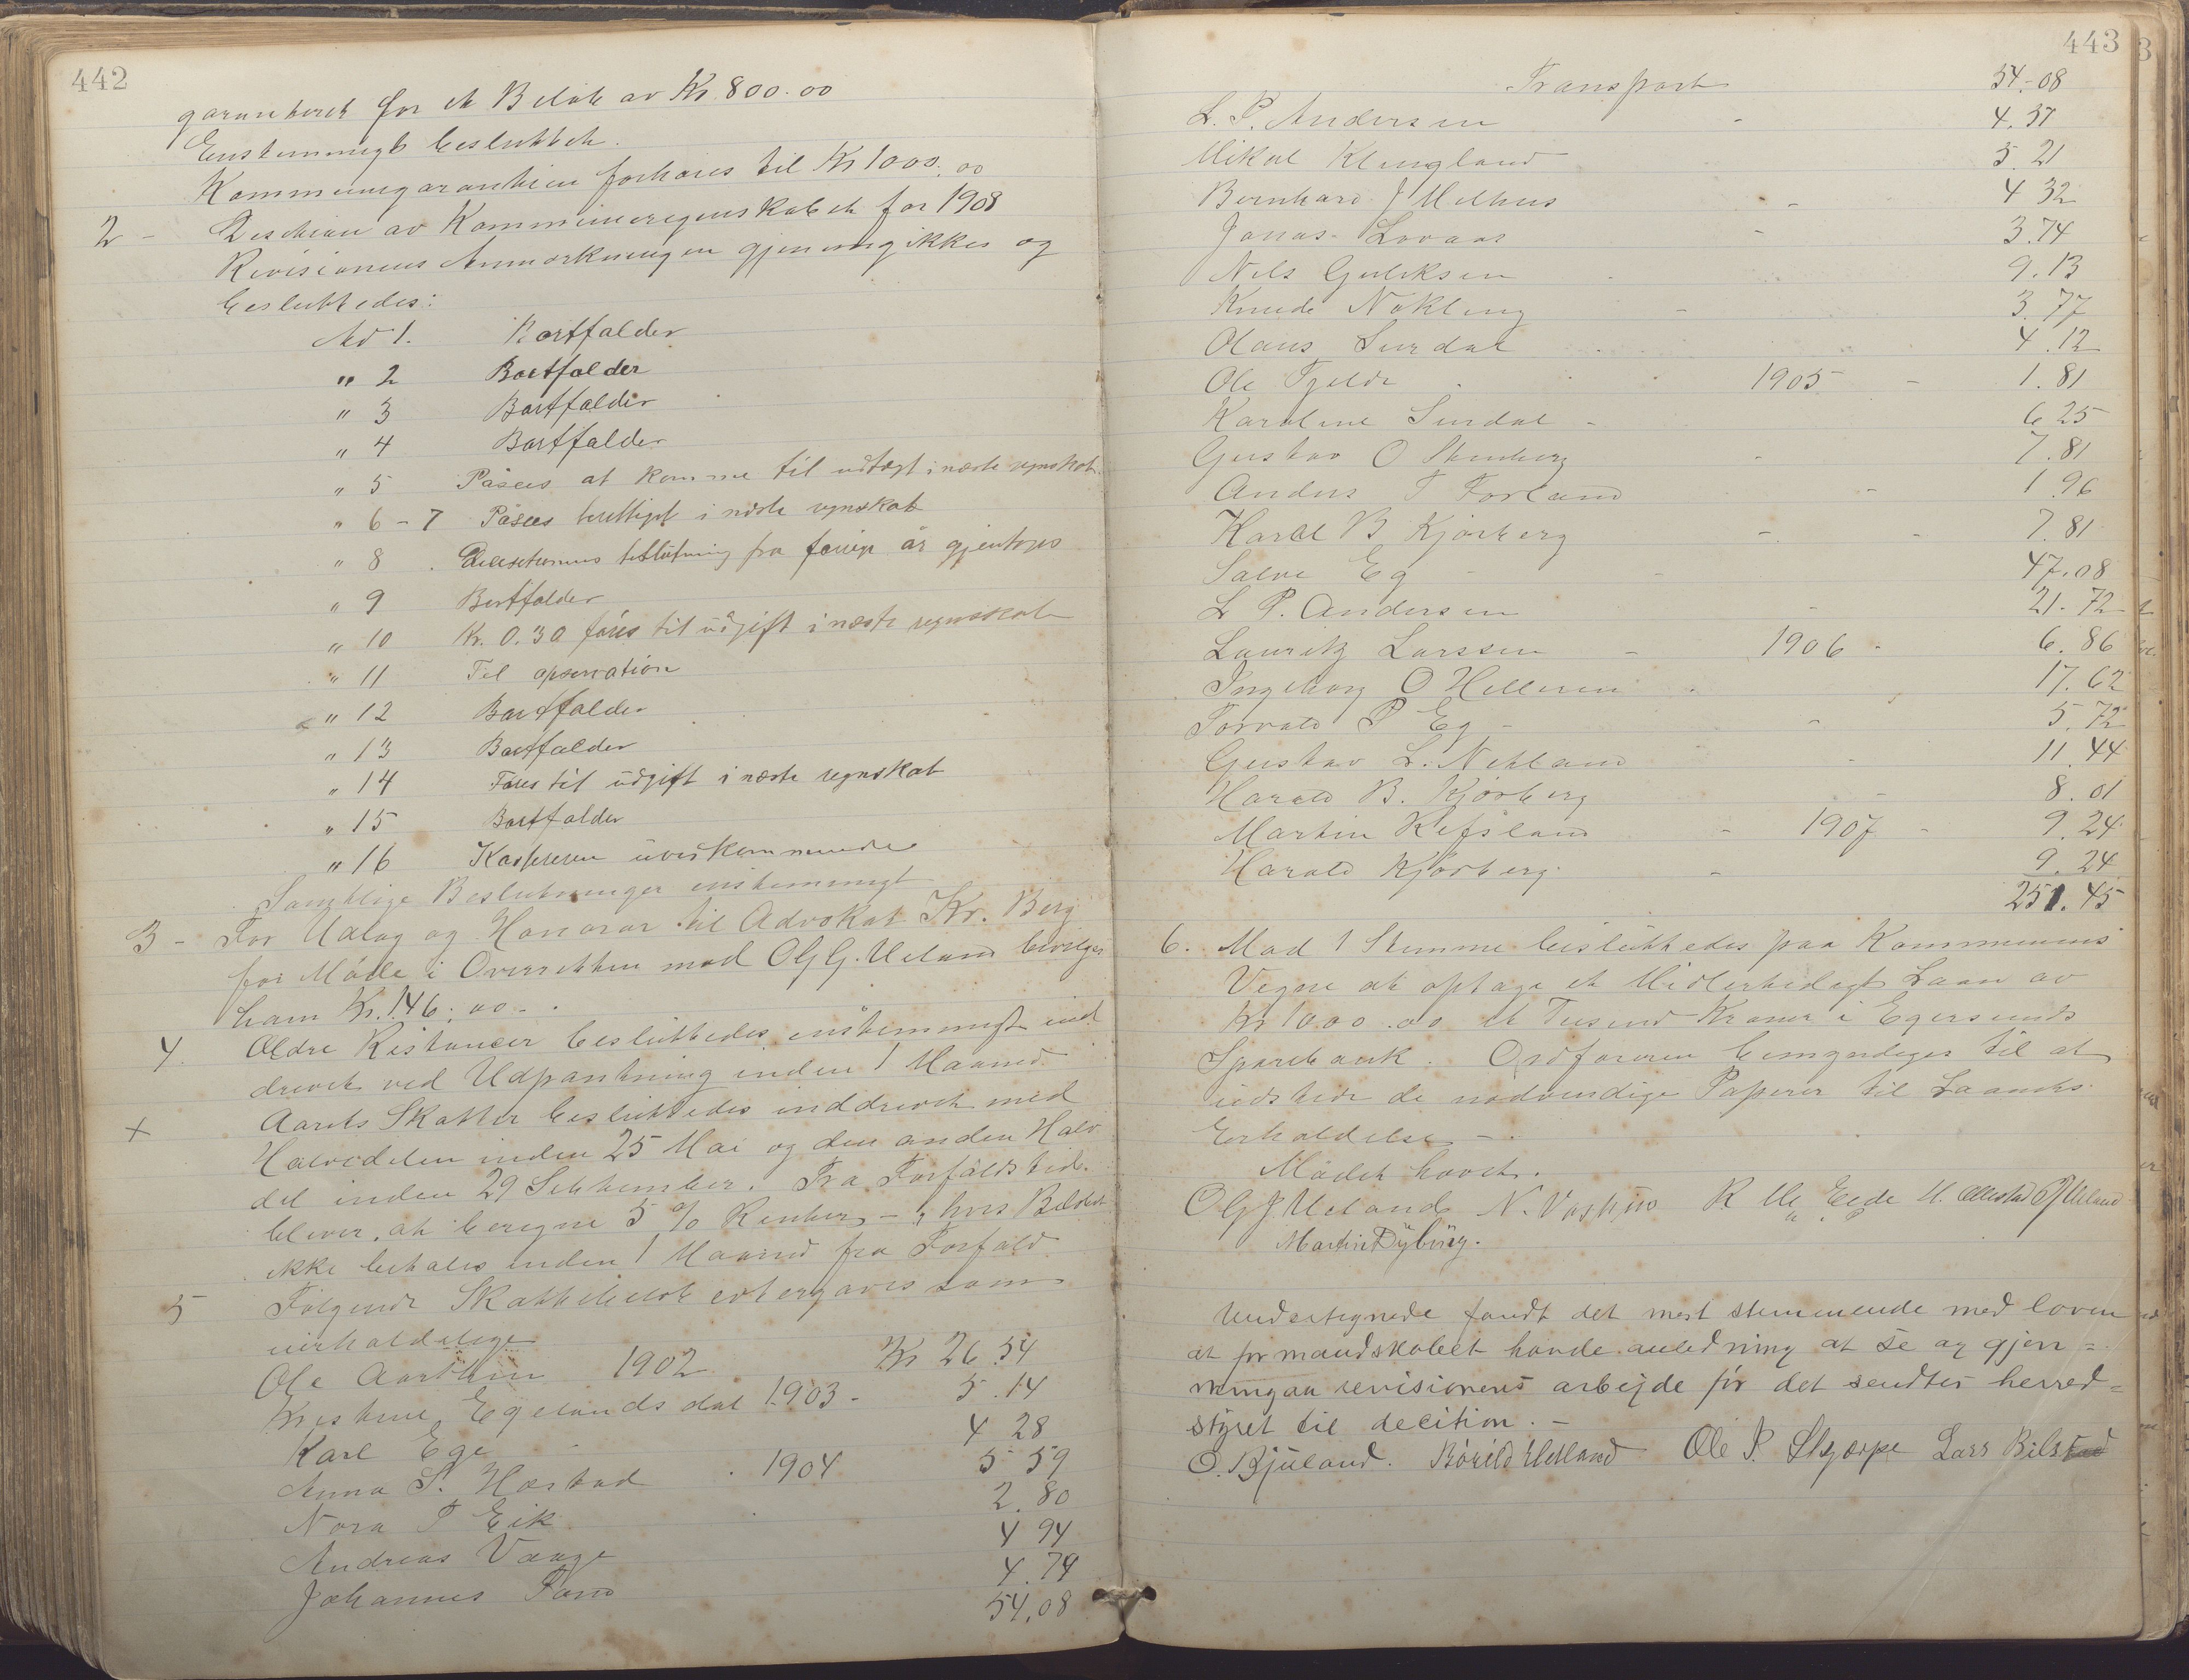 442
garanteret for et Beløb av Kr 800.00
Enstemmigt besluttet.
Kommunegarantien forhøies til Kr 1000.00
2 - Desision av Kommuneregnskabet for 1908
Revisionens Anmærkninger gjennemgikkes og
besluttedes:
Ad 1. Bortfalder
" 2 Bortfalder
" 3 Bortfalder
" 4 Bortfalder
" 5 Påsees at komme til udtægt i næste regnskab.
" 6-7 Påsees berettiget i næste regnskab
" 8 Decisionens beslutning fra forrige år gjentages
" 9 Bortfalder
" 10 Kr. 0.30 føres til udgift i næste regnskab
" 11 Til opservation
" 12 Bortfalder
" 13 Bortfalder
" 14 Føres til udgift i næste regnskab
" 15 Bortfalder
" 16 Kassereren uvedkommende
Samtlige Beslutninger enstemmigt
3 - For Udlag og Honorar til Advokat Kr. Berg
for Møde i Overretten mod O G. Ueland bevilges
ham Kr. 146.00 -
4. Ældre Restancer besluttedes enstemmigt ind
drevet ved Udpantning inden 1 Maaned.
x Aarets Skatter besluttedes inddrevet med
Halvdelen inden 25 Mai og den anden Halv
del inden 29 September. Fra Forfaldstid
bliver at beregne 5 % Renter - hvis Beløbet
ikke betales inden 1 Maaned fra Forfald
5 Følgende Skattebeløb eftergaves som
uerholdelige
Ole Aarthun 1902 Kr 26.54
Kristine Egelandsdal 1903 - 5.14
Karl Ege 4 28
Anna S. Hæstad 1904 5 59
Nora T Eik 2.80
Andreas Vaage 4 94
Johannes Tand 4.79
54.08
443
Transport 54.08
L. P. Andersen 4.37
Mikal Klungland 5.21
Bernhard J Melhus 4 32
Jonas Lovaas 3.74
Nils Guleksen 9.13
Knude Nøkling 3.77
Olaus Surdal 4.12
Ole Fjelde 1905 - 1.81
Karoline Surdal - 6 25
Gustav O Stenberg 7.81
Anders T Forland 1 96
Harald B Kjørberg 7.81
Salve Eg 47.08
L P. Andersen 21.72
Lauritz Larssen 1906 6.86
Ingeborg O Helleren 17.62
Torvald P Eg 5.72
Gustav L. Netland 11.44
Harald B. Kjørberg 8.01
Martin Refsland 1907 9.24
Harald Kjørberg 9.24
251.45
6. Mod 1 Stemme besluttedes paa Kommunens
Vegne at optage et Midlertidigt Laan av
Kr 1000.00 et Tusind Kroner i Egersunds
Sparebank. Ordføreren bemyndiges til at
udstede de nødvendige Papirer til Laanets
Erholdelse -
Mødet hævet.
O G Ueland N. Vaskjus R Ole Eede M. Ollestad O J Ueland
Martin Dybing.
Undertegnede fandt det mest stemmende med loven
at formandskabet havde anledning at se og gjen=
nemgaa revisionens arbejde før det sendtes herred=
styret til decition. -
O. Bjuland. Bårild Hetland Ole P. Skjærpe Lars Bilstad